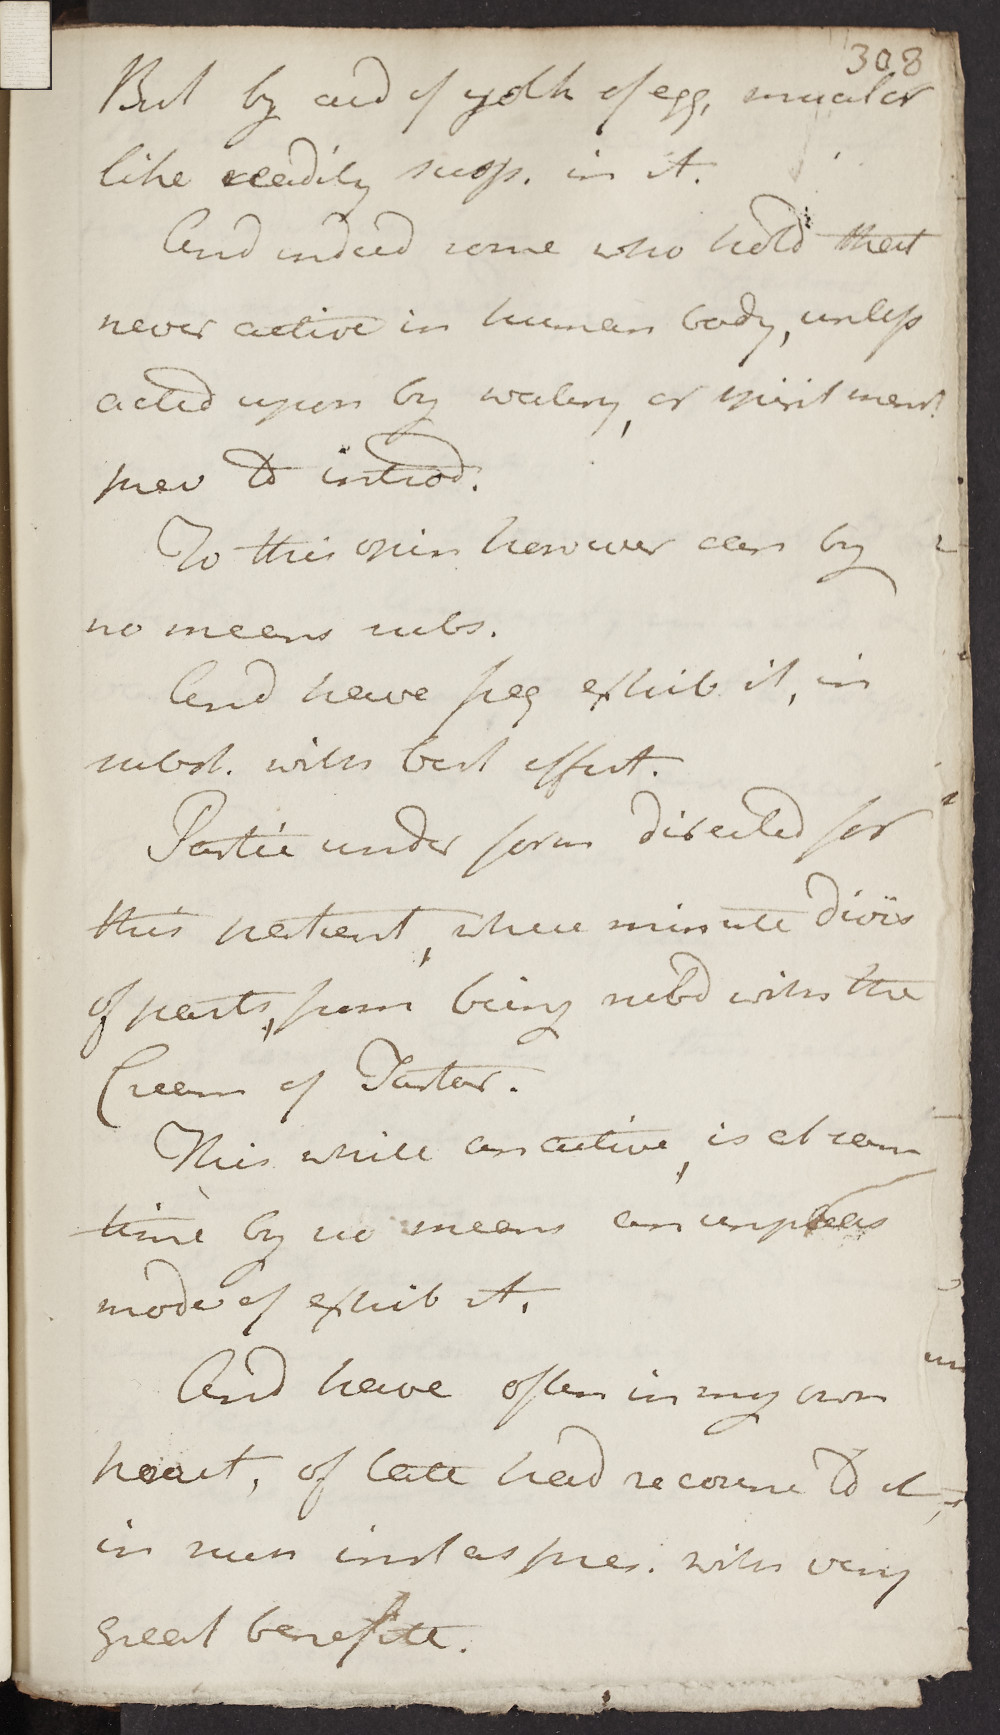 308
But by aid of yolk of egg, mucil or
like readily susp. in it.
And indeed some who hold that
never active in human body, unless
acted upon by watery, or spirit menst
prev to introd.
To this opin however can by
no means subs.
And have freq exhib it, in
subst. with best effect.
Partic under form directed for
this patient, where minute divis
of parts, from being rubd with the
Cream of Tartar.
This while an active, is at same
time by no means an unpleas
mode of exhib it.
And have often in my own
pract, of late had recourse to it,
in such inst as pres. with very
great benefite.